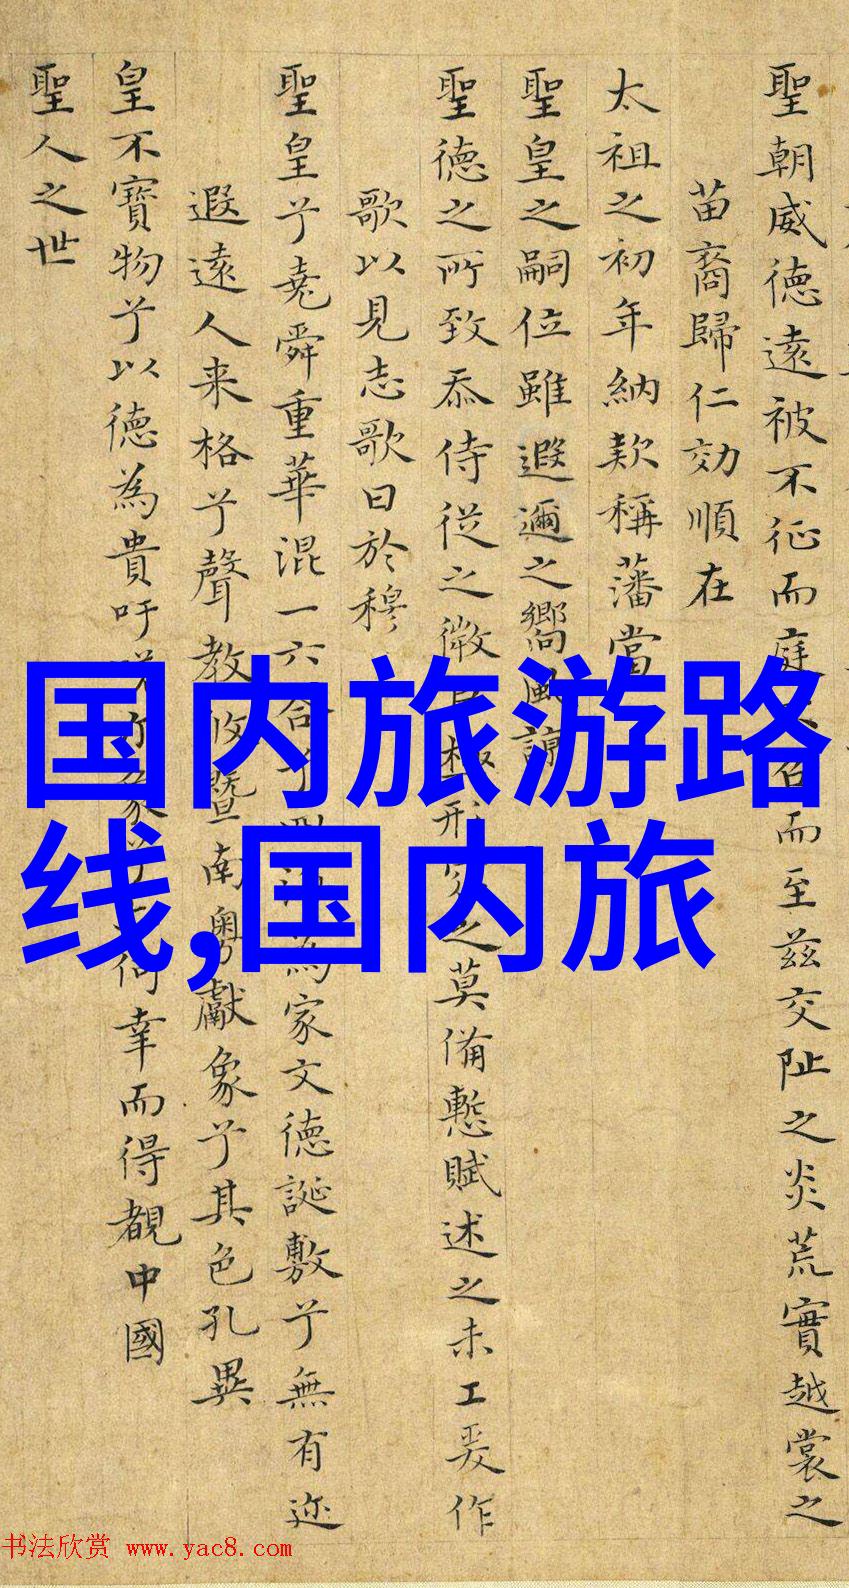 聖朝威德遠被不征而庭
而至茲交阯之炎荒實越裳之
苗裔歸仁効順在
太祖之初年納欵稱藩當
聖皇之嗣位雖遐邇之嚮風諒
聖德之所致忝侍從之微
形
之莫備慙賦述之未工爰作
歌以見志歌曰於穆
聖皇兮堯舜重華混一六合兮
為家文德誕敷兮無有迩
遐遠人来格兮聲教攸暨南粵獻象兮其色孔異
皇不寶物兮以德為貴吁
何幸而得覩中國
聖人之世
国内旅游路
线,国内旅
书法欣赏 www.yac8.com